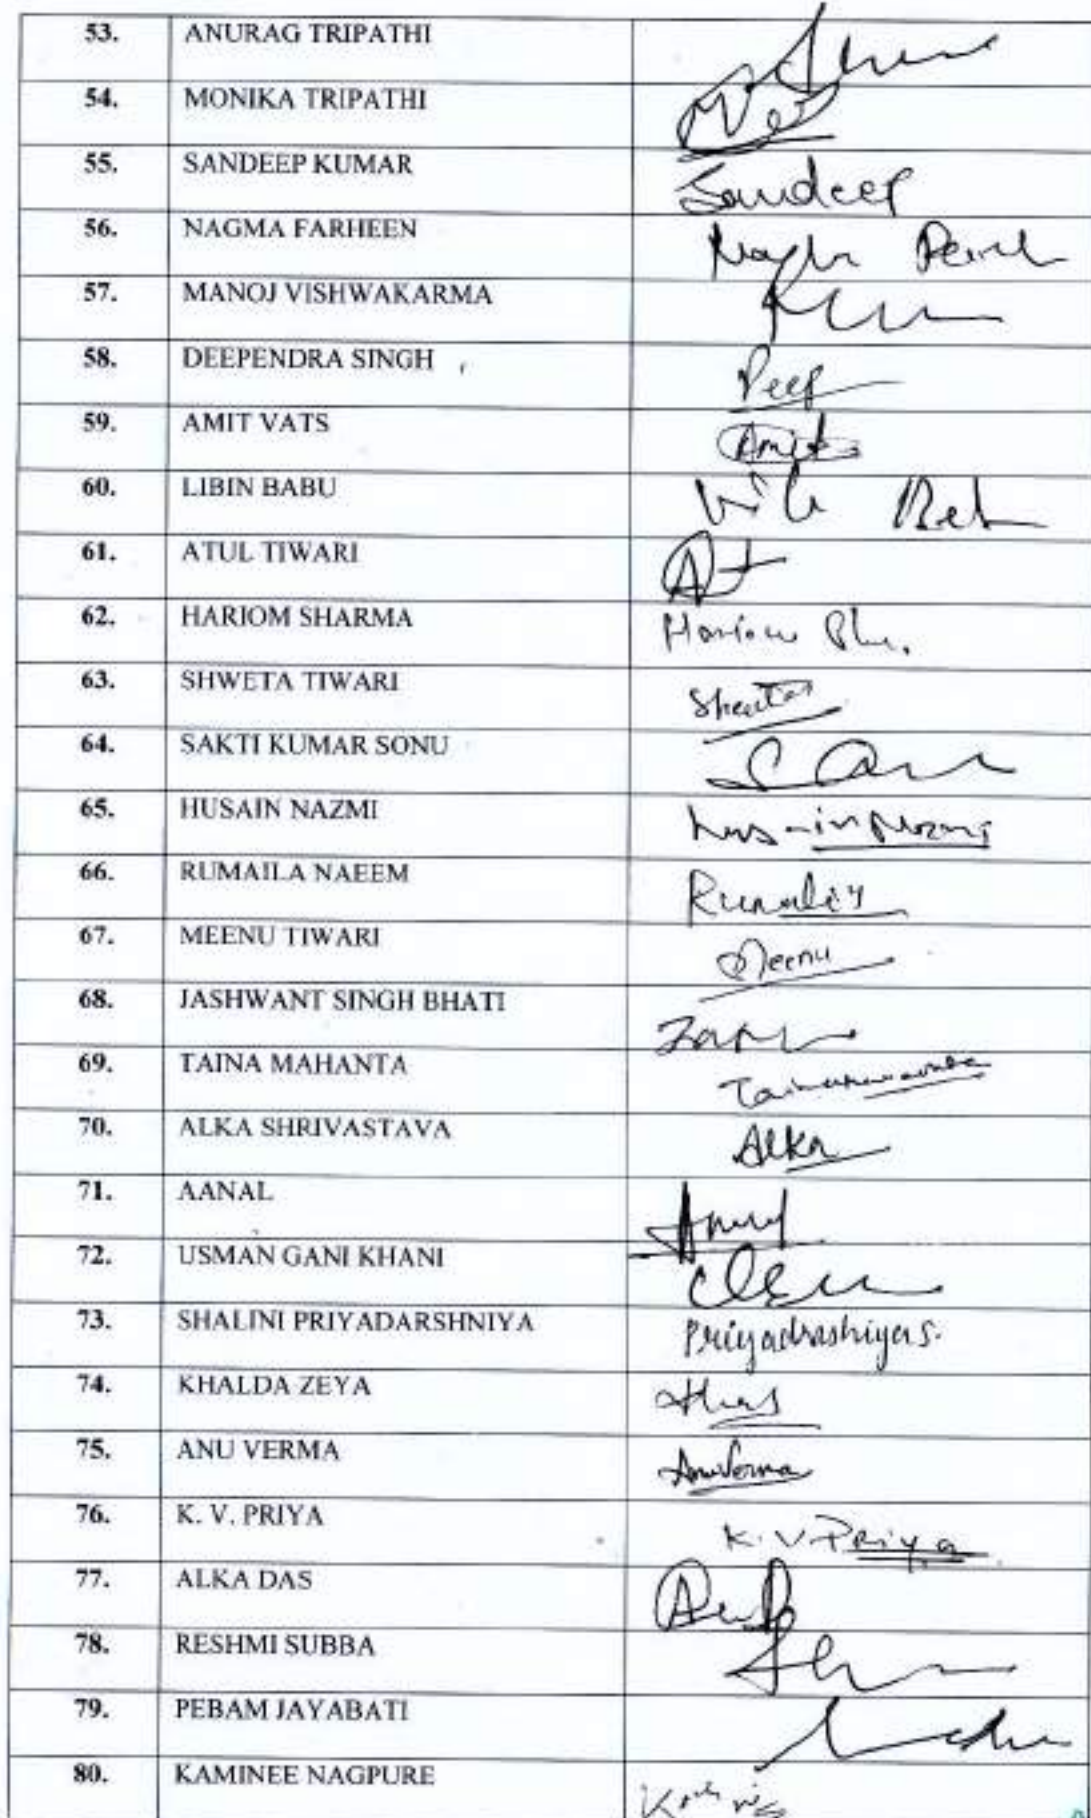 53. ANURAG TRIPATHI
54. MONIKA TRIPATHI
55. SANDEEP KUMAR Sandeep
56. NAGMA FARHEEN
57. MANOJ VISHWAKARMA
58. DEEPENDRA SINGH Deep
59. AMIT VATS Amit
60. LIBIN BABU
61. ATUL TIWARI
62. HARIOM SHARMA Hariom
63. SHWETA TIWARI
64. SAKTI KUMAR SONU
65. HUSAIN NAZMI
66. RUMAILA NAEEM
67. MEENU TIWARI Meenu
68. JASHWANT SINGH BHATI
69. TAINA MAHANTA
70. ALKA SHRIVASTAVA Alka
71. AANAL
72. USMAN GANI KHANI
73. SHALINI PRIYADARSHNIYA
74. KHALDA ZEYA
75. ANU VERMA AnuVerma
76. K. V. PRIYA K. V. Priya
77. ALKA DAS
78. RESHMI SUBBA
79. PEBAM JAYABATI
80. KAMINEE NAGPURE